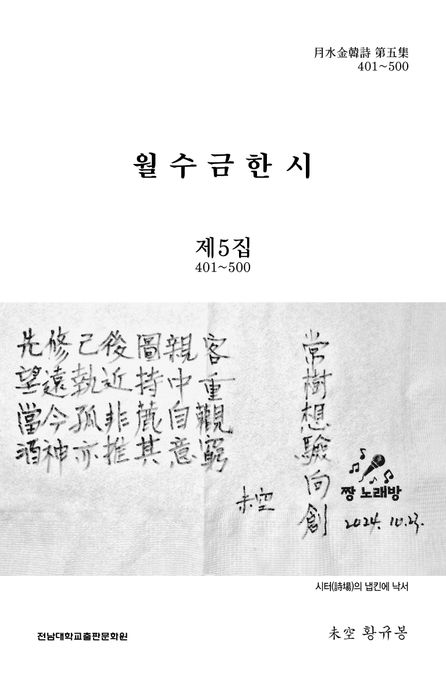 月水金韓詩 第五集
401~500
월 수 금 한 시
제5집
401~500
常樹想驗向創
客重觀窮
親中自意
圖持麓其
後近非推
己執孤亦
修遠今神
先望當酒
未空
짱 노래방
2024. 10. 23.
시터(詩場)의 냅킨에 낙서
전남대학교출판문화원
未空 황규봉